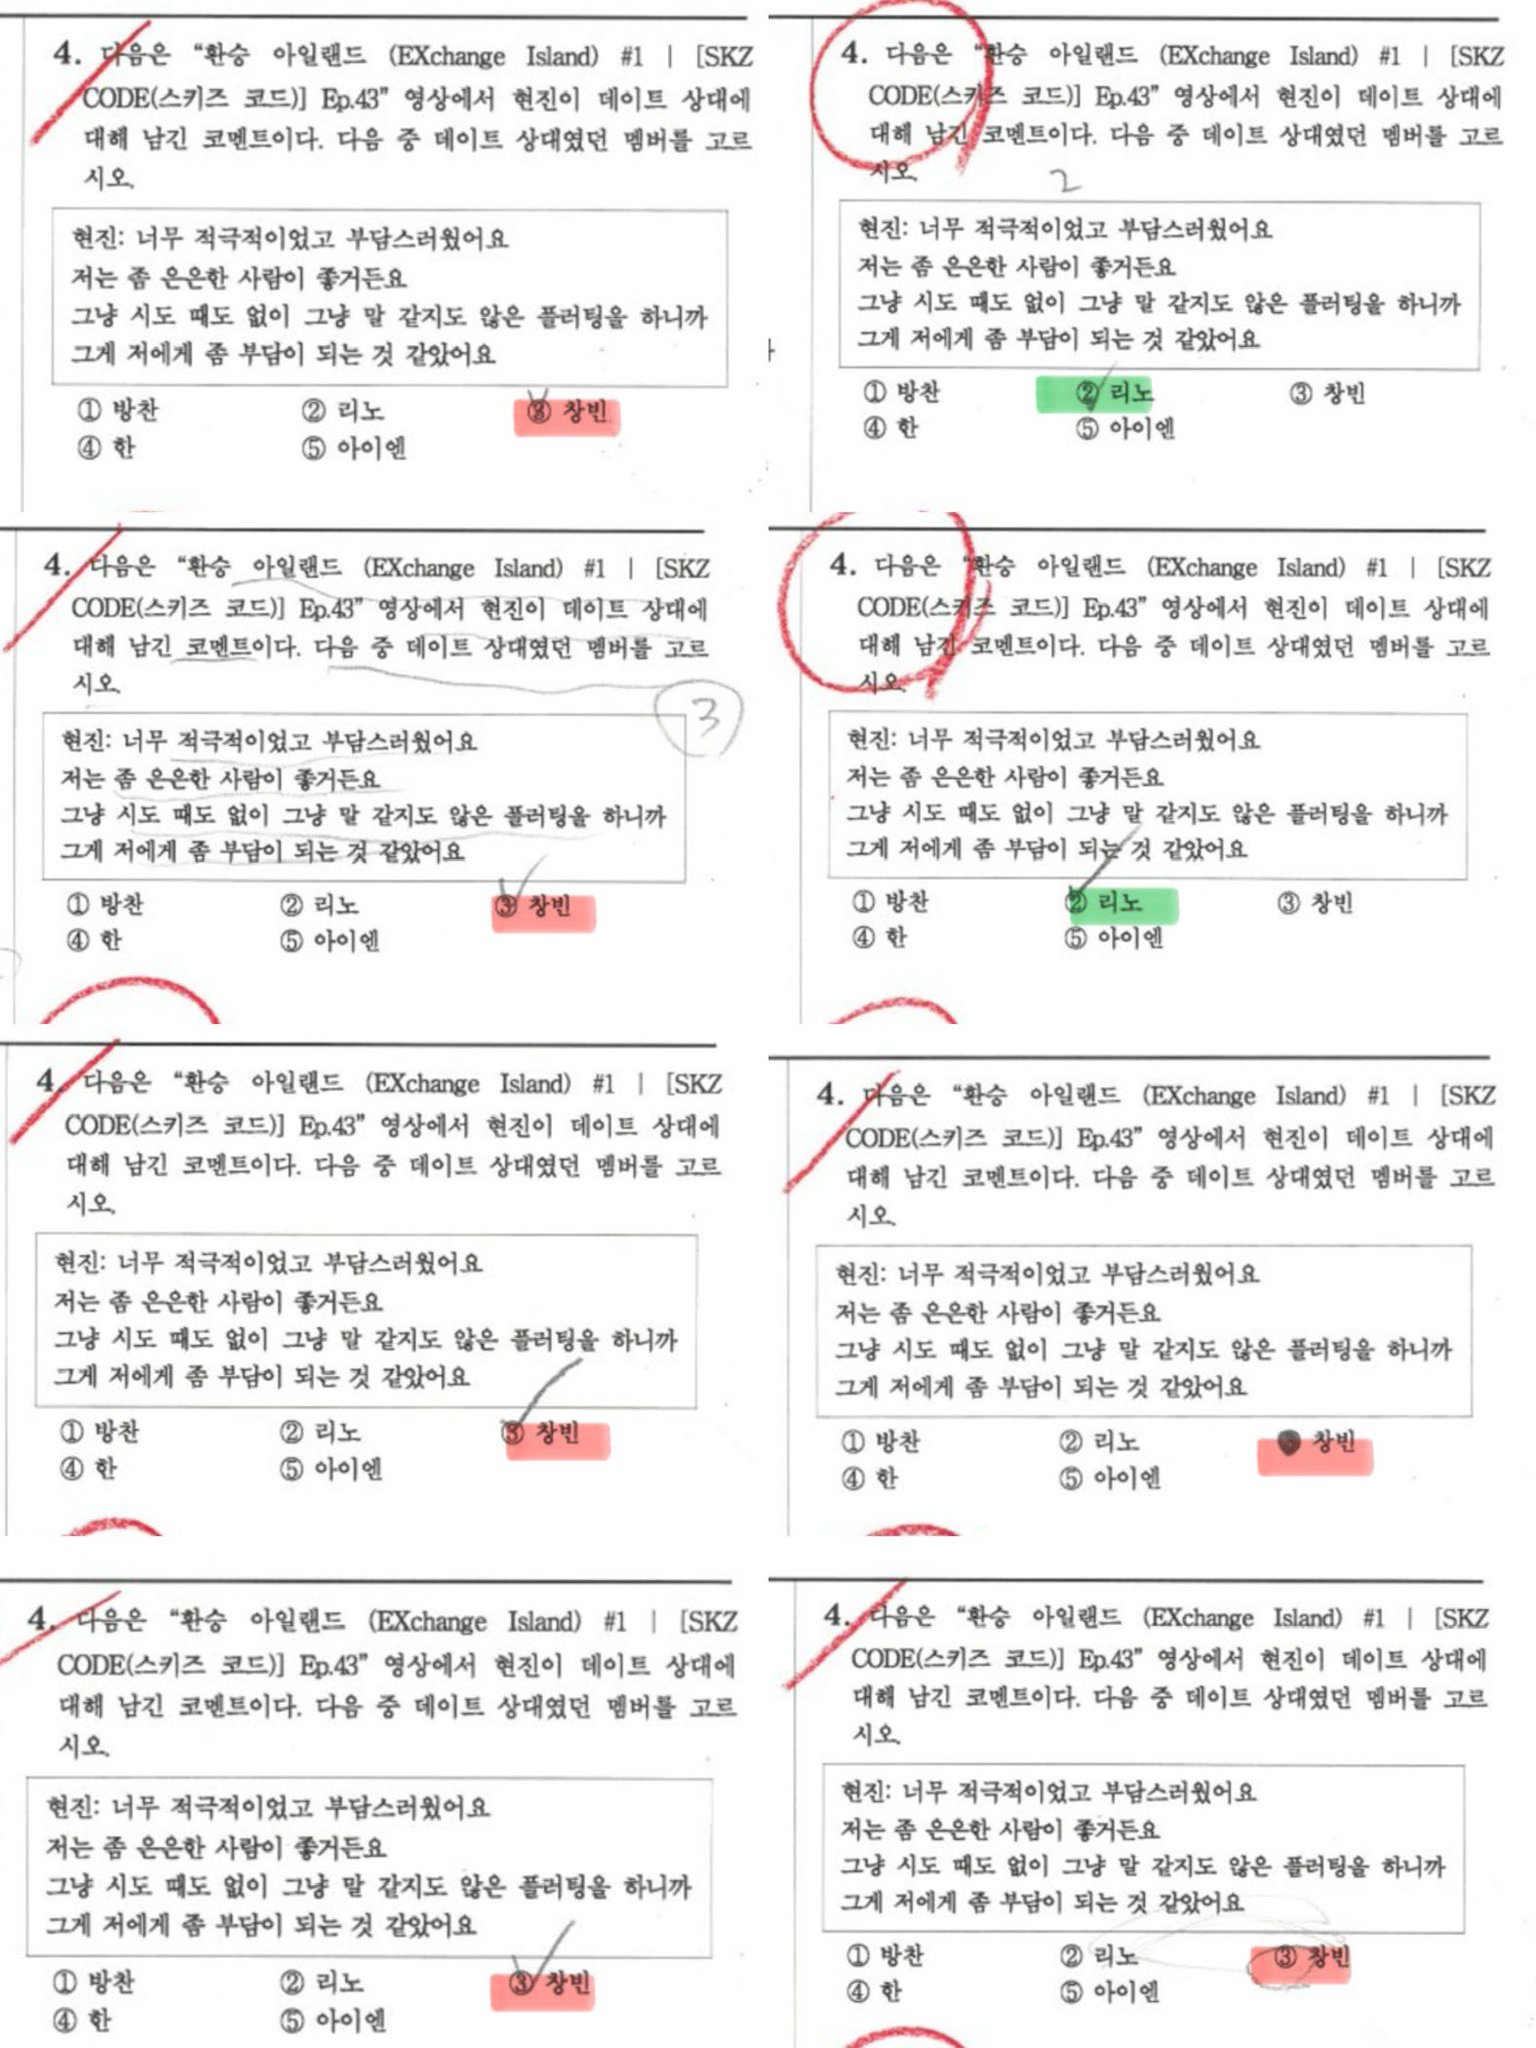 4. 다음은 “환승 아일랜드 (EXchange Island) #1 | [SKZ
CODE(스키즈 코드)] Ep.43” 영상에서 현진이 데이트 상대에
대해 남긴 코멘트이다. 다음 중 데이트 상대였던 멤버를 고르
시오.
현진: 너무 적극적이었고 부담스러웠어요
저는 좀 은은한 사람이 좋거든요
그냥 시도 때도 없이 그냥 말 같지도 않은 플러팅을 하니까
그게 저에게 좀 부담이 되는 것 같았어요
① 방찬 ② 리노 ③ 창빈
④ 한 ⑤ 아이엔
4. 다음은 “환승 아일랜드 (EXchange Island) #1 | [SKZ
CODE(스키즈 코드)] Ep.43” 영상에서 현진이 데이트 상대에
대해 남긴 코멘트이다. 다음 중 데이트 상대였던 멤버를 고르
시오.
2
현진: 너무 적극적이었고 부담스러웠어요
저는 좀 은은한 사람이 좋거든요
그냥 시도 때도 없이 그냥 말 같지도 않은 플러팅을 하니까
그게 저에게 좀 부담이 되는 것 같았어요
① 방찬 ② 리노 ③ 창빈
④ 한 ⑤ 아이엔
4. 다음은 “환승 아일랜드 (EXchange Island) #1 | [SKZ
CODE(스키즈 코드)] Ep.43” 영상에서 현진이 데이트 상대에
대해 남긴 코멘트이다. 다음 중 데이트 상대였던 멤버를 고르
시오.
3
현진: 너무 적극적이었고 부담스러웠어요
저는 좀 은은한 사람이 좋거든요
그냥 시도 때도 없이 그냥 말 같지도 않은 플러팅을 하니까
그게 저에게 좀 부담이 되는 것 같았어요
① 방찬 ② 리노 ③ 창빈
④ 한 ⑤ 아이엔
4. 다음은 “환승 아일랜드 (EXchange Island) #1 | [SKZ
CODE(스키즈 코드)] Ep.43” 영상에서 현진이 데이트 상대에
대해 남긴 코멘트이다. 다음 중 데이트 상대였던 멤버를 고르
시오.
현진: 너무 적극적이었고 부담스러웠어요
저는 좀 은은한 사람이 좋거든요
그냥 시도 때도 없이 그냥 말 같지도 않은 플러팅을 하니까
그게 저에게 좀 부담이 되는 것 같았어요
① 방찬 ② 리노 ③ 창빈
④ 한 ⑤ 아이엔
4. 다음은 “환승 아일랜드 (EXchange Island) #1 | [SKZ
CODE(스키즈 코드)] Ep.43” 영상에서 현진이 데이트 상대에
대해 남긴 코멘트이다. 다음 중 데이트 상대였던 멤버를 고르
시오.
현진: 너무 적극적이었고 부담스러웠어요
저는 좀 은은한 사람이 좋거든요
그냥 시도 때도 없이 그냥 말 같지도 않은 플러팅을 하니까
그게 저에게 좀 부담이 되는 것 같았어요
① 방찬 ② 리노 ③ 창빈
④ 한 ⑤ 아이엔
4. 다음은 “환승 아일랜드 (EXchange Island) #1 | [SKZ
CODE(스키즈 코드)] Ep.43” 영상에서 현진이 데이트 상대에
대해 남긴 코멘트이다. 다음 중 데이트 상대였던 멤버를 고르
시오.
현진: 너무 적극적이었고 부담스러웠어요
저는 좀 은은한 사람이 좋거든요
그냥 시도 때도 없이 그냥 말 같지도 않은 플러팅을 하니까
그게 저에게 좀 부담이 되는 것 같았어요
① 방찬 ② 리노 창빈
④ 한 ⑤ 아이엔
4. 다음은 “환승 아일랜드 (EXchange Island) #1 | [SKZ
CODE(스키즈 코드)] Ep.43” 영상에서 현진이 데이트 상대에
대해 남긴 코멘트이다. 다음 중 데이트 상대였던 멤버를 고르
시오.
현진: 너무 적극적이었고 부담스러웠어요
저는 좀 은은한 사람이 좋거든요
그냥 시도 때도 없이 그냥 말 같지도 않은 플러팅을 하니까
그게 저에게 좀 부담이 되는 것 같았어요
① 방찬 ② 리노 ③ 창빈
④ 한 ⑤ 아이엔
4. 다음은 “환승 아일랜드 (EXchange Island) #1 | [SKZ
CODE(스키즈 코드)] Ep.43” 영상에서 현진이 데이트 상대에
대해 남긴 코멘트이다. 다음 중 데이트 상대였던 멤버를 고르
시오.
현진: 너무 적극적이었고 부담스러웠어요
저는 좀 은은한 사람이 좋거든요
그냥 시도 때도 없이 그냥 말 같지도 않은 플러팅을 하니까
그게 저에게 좀 부담이 되는 것 같았어요
① 방찬 ② 리노 ③ 창빈
④ 한 ⑤ 아이엔